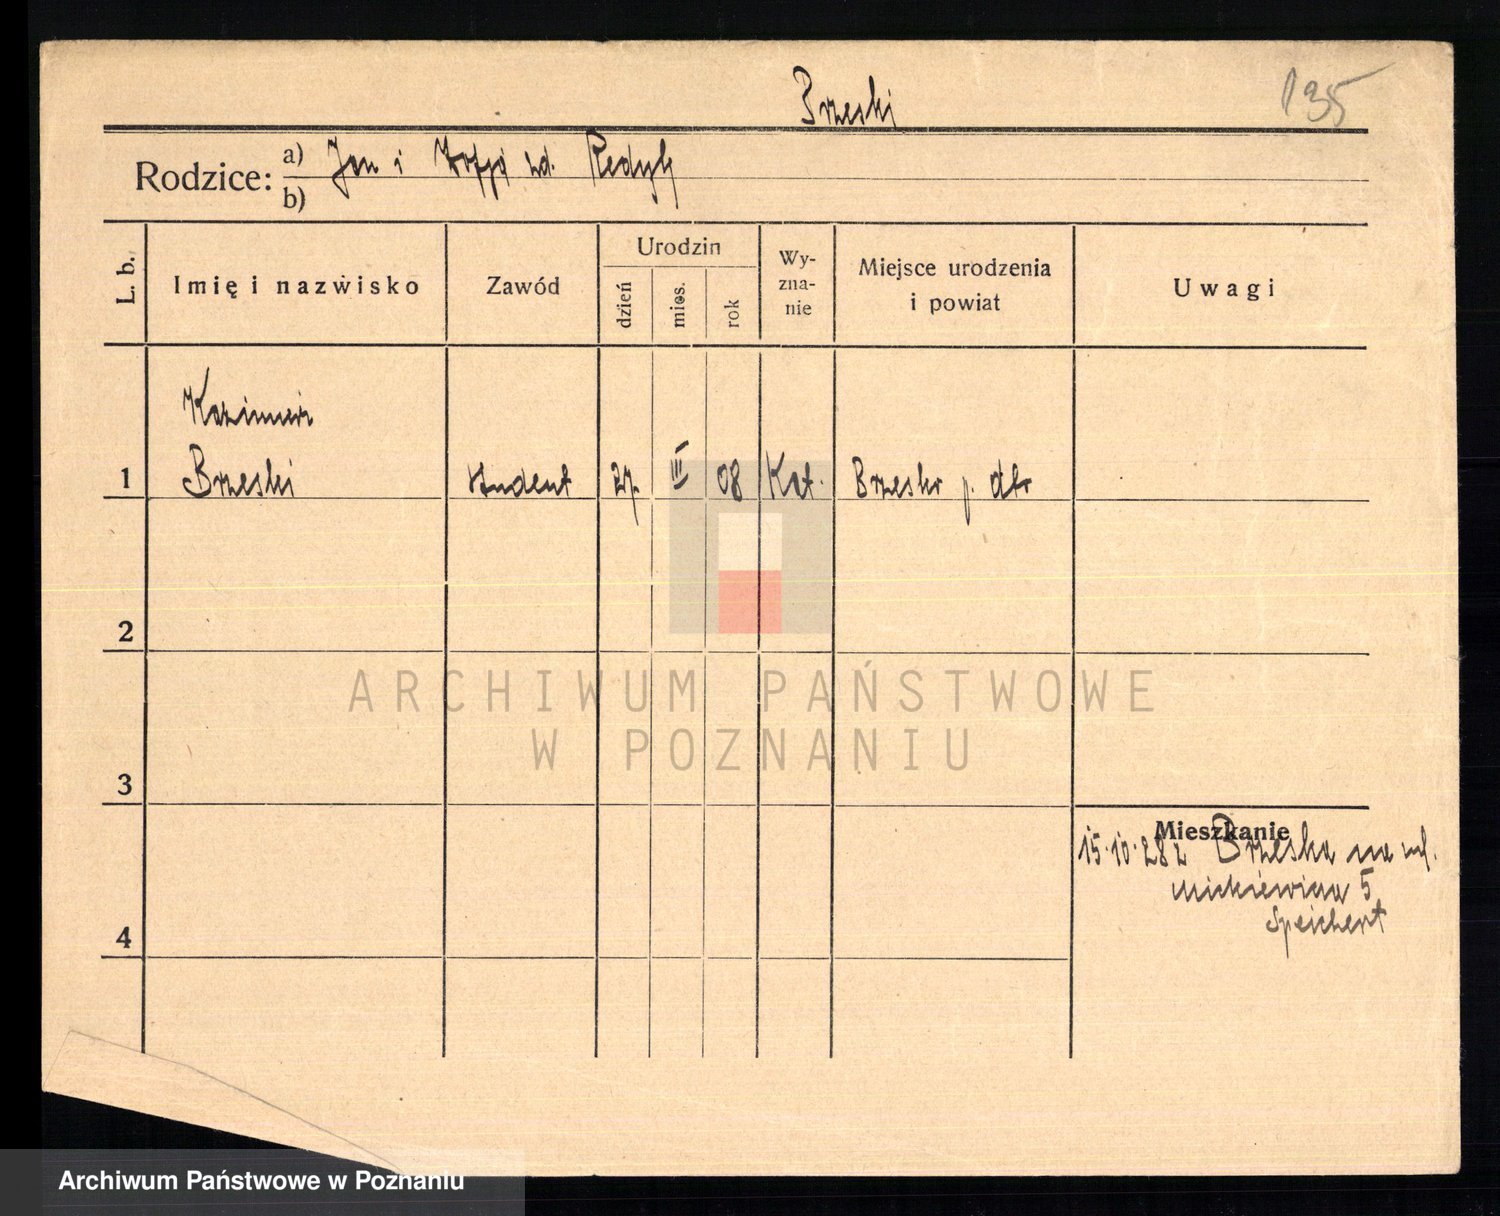 Brzeski
135
Rodzice: a) Jan i Zofja zd. Redyk
b)
L. b. Imię i nazwisko Zawód Urodzin dzień mies. rok Wy-zna-nie Miejsce urodzenia i powiat Uwagi
Kazimierz
1 Brzeski student 27. III 08 Kat. Brzesko p. dto
2
ARCHIWUM PAŃSTWOWE
W POZNANIU
3
Mieszkanie
15.10.28 z Brzeska na ul.
Mickiewicza 5
Speichert
4
Archiwum Państwowe w Poznaniu